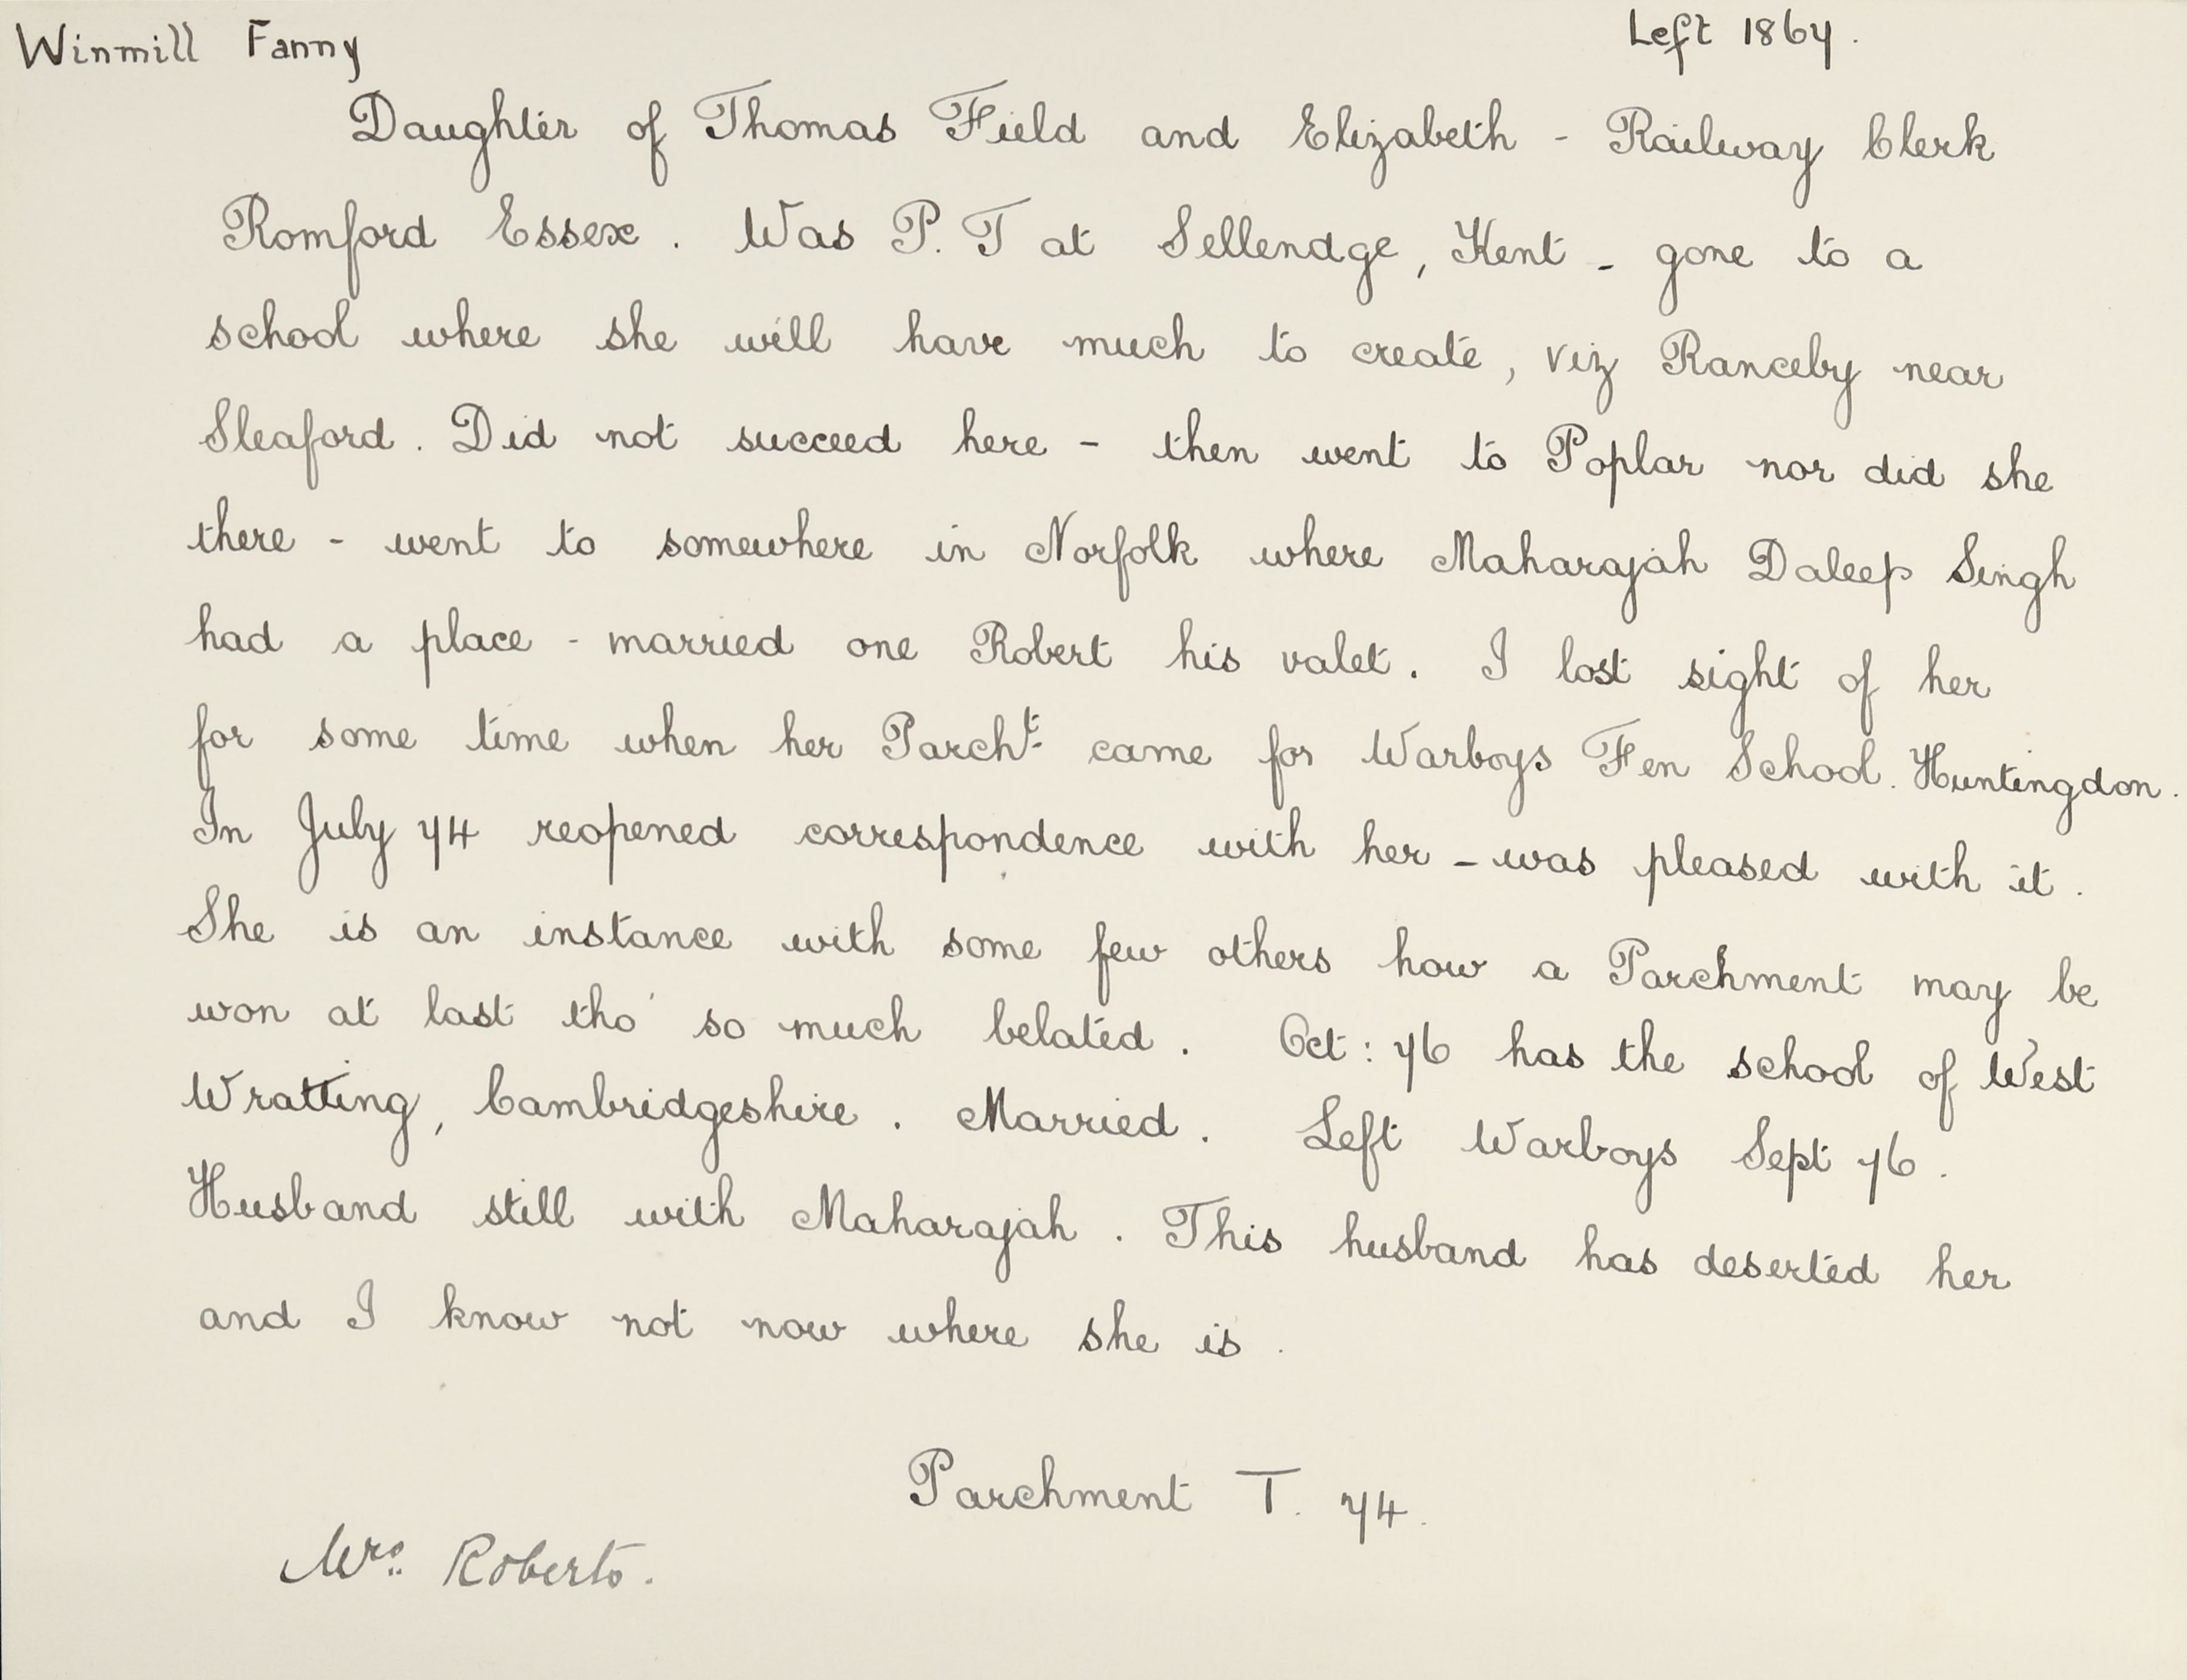 Winmill Fanny Left 1867.
Daughter of Thomas Field and Elizabeth - Railway Clerk
Romford Essex. Was P.T at Sellendge, Kent - gone to a
school where she will have much to create, viz Ranceby near
Sleaford. Did not succeed here - then went to Poplar nor did she
there - went to somewhere in Norfolk where Maharajah Daleep Singh
had a place - married one Robert his valet. I lost sight of her
for some time when her Parcht. came for Warboys Fen School. Huntingdon.
In July 74 reopened correspondence with her - was pleased with it.
She is an instance with some few others how a Parchment may be
won at last tho' so much belated. Oct: 76 has the school of West
Wratting, Cambridgeshire. Married. Left Warboys Sept 76.
Husband still with Maharajah. This husband has deserted her
and I know not now where she is.
Parchment T. 74.
Mrs. Roberts.